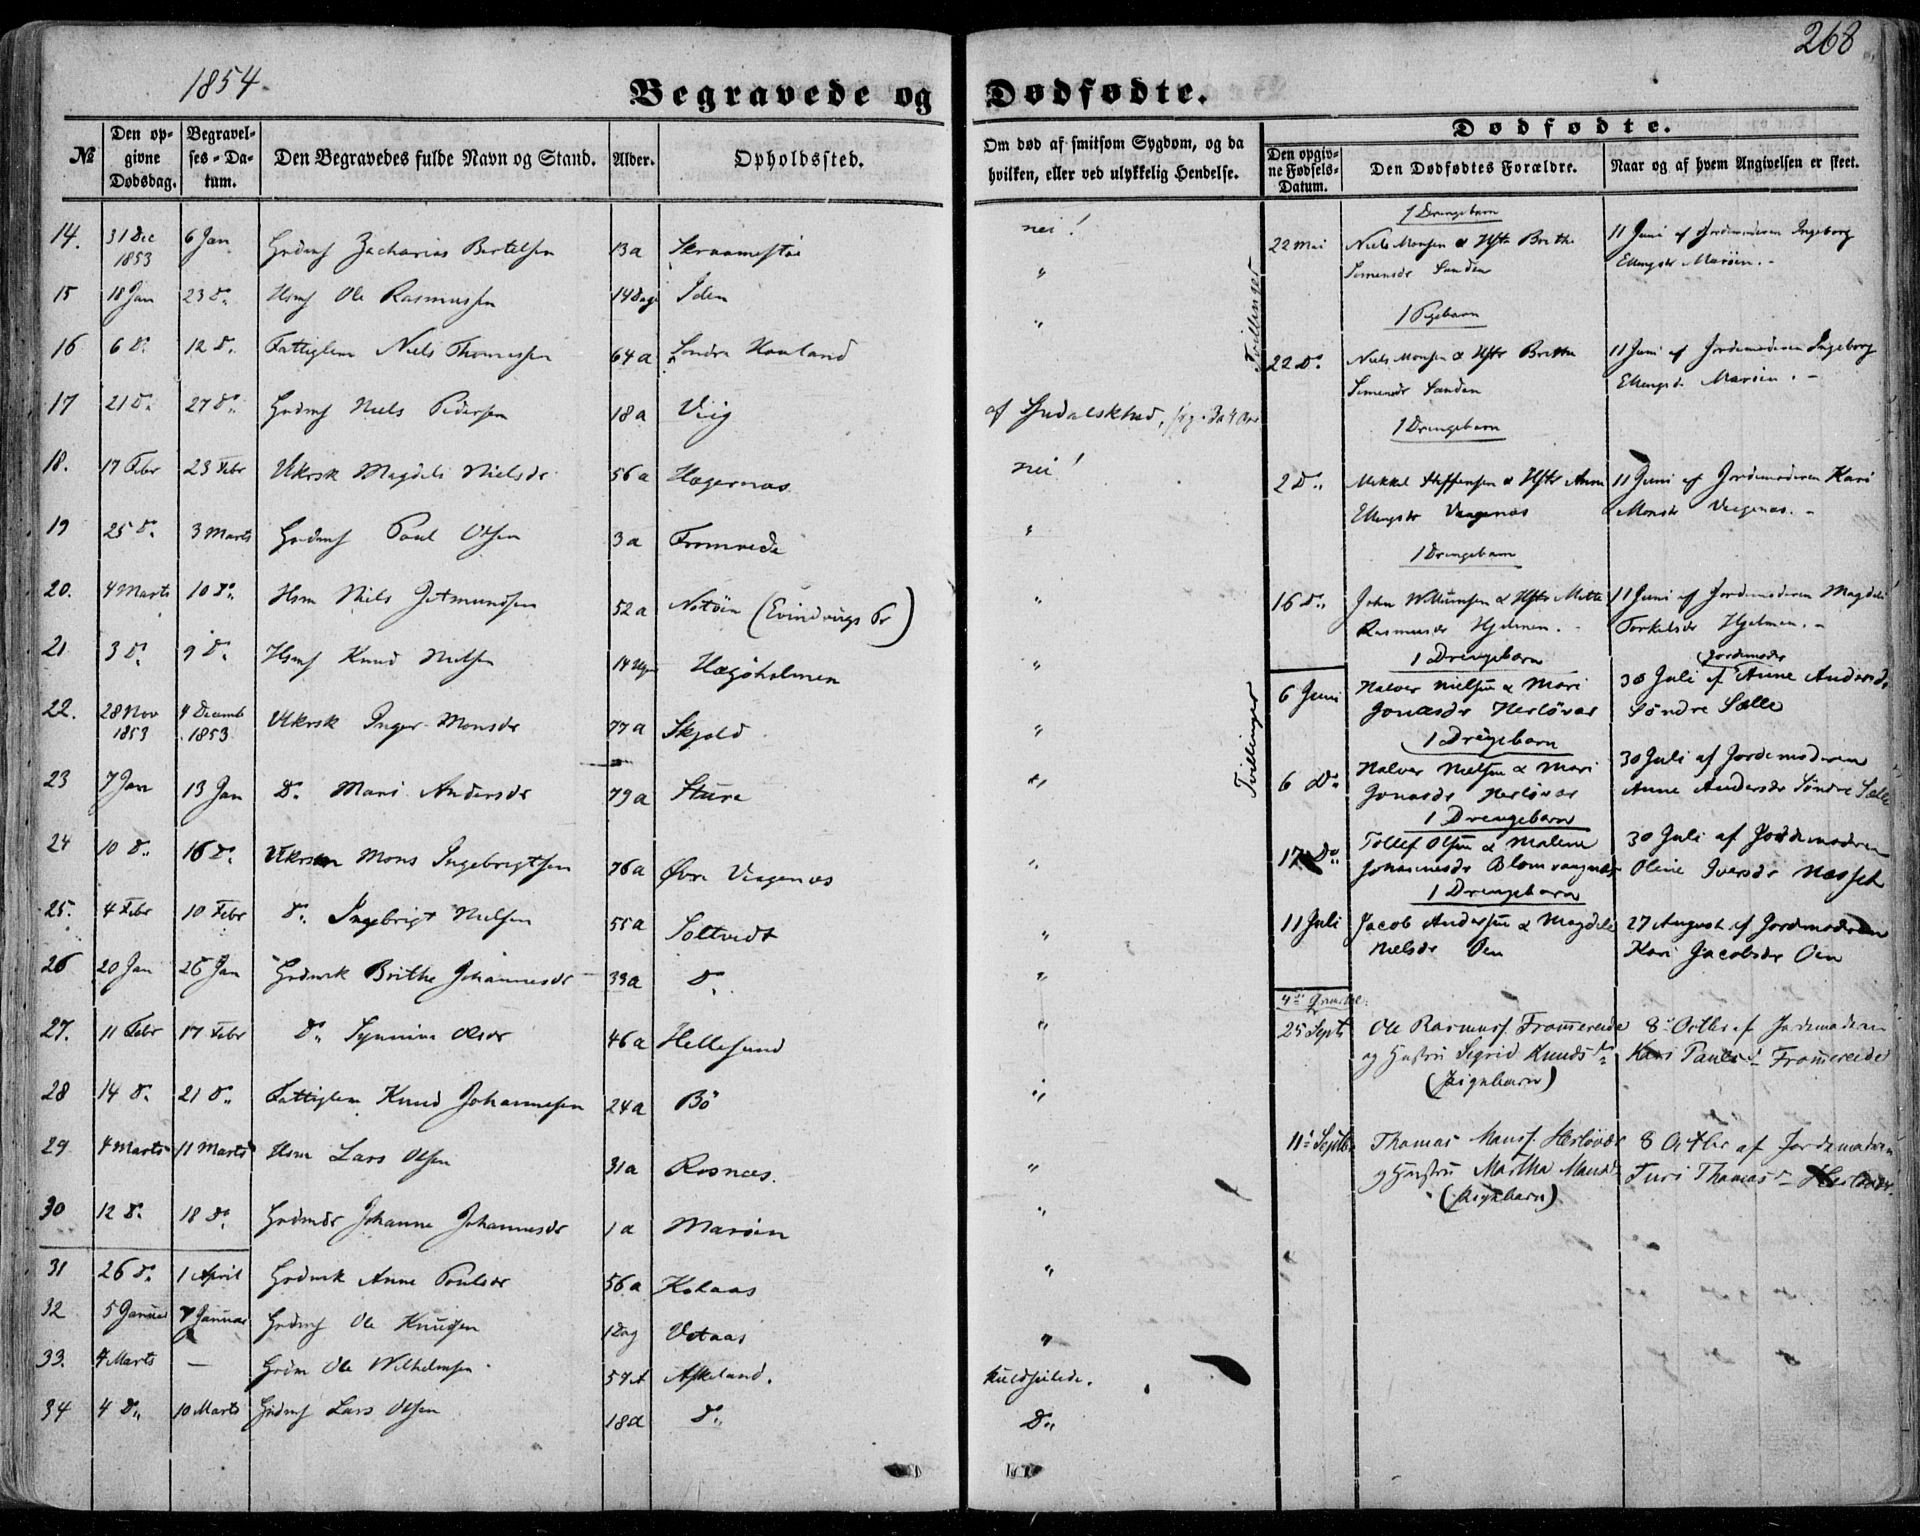 1854
268
Begravede og Dødfødte.
№ Den opgivne Dødsdag. Begravelses-Datum. Den Begravedes fulde Navn og Stand. Alder. Opholdssted. Om død af smitsom Sygdom, og da hvilken, eller ved ulykkelig Hendelse.
14. 31 Dec 1853 6 Jan Zacharias Bertelsen 13a nei!
15 18 Jan 23 D. Ole Rasmussen 14 Dage Iden "
16 6 D. 12 D. Fattiglem Niels Thomessen 64a Søndre Houland "
17 21 D. 27 D. Niels Pedersen 18a Viig af Spedalskhed,
18. 17 Febr 23 Febr Magdeli Nielsdr 56a Hagernæs nei!
19 25 D. 3 Marts Poul Olsen 3a "
20. 4 Marts 10 D. Hsm Niels 52a (Evindvigs Pr) "
21 3 D. 9 D. Knud Nielsen "
22. 28 Nov 1853 4 Decemb 1853 Inger Monsdr 77a Skjold "
23 7 Jan 13 Jan D. Mari Andersdr 79a Sture "
24 10 D. 16 D. Mons Ingebrigtsen 76a Øvre Vaagenæs "
25. 4 Febr 10 Febr D. Ingebrigt Nielsen 55a Toltvedt "
26 20 Jan 26 Jan Brithe Johannesdr 33a D. "
27. 11 Febr 17 Febr D. Synnive Olsdr 46a Hellesund "
28 14 D. 21 D. Fattiglem Knud Johannesen 24a Bö "
29 4 Marts 11 Marts Hsm Lars Olsen 31a Rosnæs. "
30 12 D. 18 D. Johanne Johannesdr 1a Marøen "
31 26 D. 1 April Anne Poulsdr 56a "
32 5 Januar 7 Januar Ole Knudsen 1 Dag Vetaas "
33. 4 Marts — Ole Wilhelmsen 57A Askeland. kuldseilede.
34 4 D. 10 Marts Lars Olsen 18a D. D.
Dødfødte.
Den opgivne Fødsels-Datum. Den Dødfødtes Forældre. Naar og af hvem Angivelsen er skeet.
Tvillinger
1 Drengebarn
22 Mai Niels Monsen & Hstr Brithe 11 Juni af Jordemoderen Ingeborg
Simensdr Sanden Ellingsdr Marøen. -
1 Pigebarn
22 D. Niels Monsen & Hstr Brithe 11 Juni af Jordemoderen Ingeborg
Simensdr Sanden Ellingsdr Marøen. -
1 Drengebarn
2 D. Mikkel Steffensen & Hstr Anne 11 Juni af Jordemoderen Kari
Ellingsdr Vaagenæs Monsdr Vaagenæs. -
1 Drengebarn
16 D. John Willumsen & Hstr Mette 11 Juni af Jordemoderen Magdeli
Rasmusdr Hjelmen. - Torkelsdr Hjelmen. -
Tvillinger
1 Drengebarn
6 Juni Halver Nielsen & Mari 30 Juli af Jordemoder Anne Andersdr
Jonasdr Herløvær Søndre Sælle
1 Drengebarn
6 D. Halver Nielsen & Mari 30 Juli af Jordemoderen
Jonasdr Herløvær Anne Andersdr Søndre Sælle
1 Drengebarn
17 D. Tollef Olsen & Malene 30 Juli af Jordemoderen
Johannesdr Blomvaagnæs Oline Iversdr Næsset
1 Drengebarn
11 Juli Jacob Andersen & Magdele 27 August af Jordemoderen
Nielsdr Oen Kari Jacobsdr Oen
4de Qvartal.
25 Sept Ole Rasmuss. Frommereide 8 Octbr af Jordemoderen
og Hustru Sigrid Knudsdr Kari Paulsd Frommereide
(Pigebarn)
11 Septbr Thomas Monss. Herløvær 8 Octbr af Jordemoderen
og Hustru Martha Turi Thomasd Herløvær.
(Pigebarn)